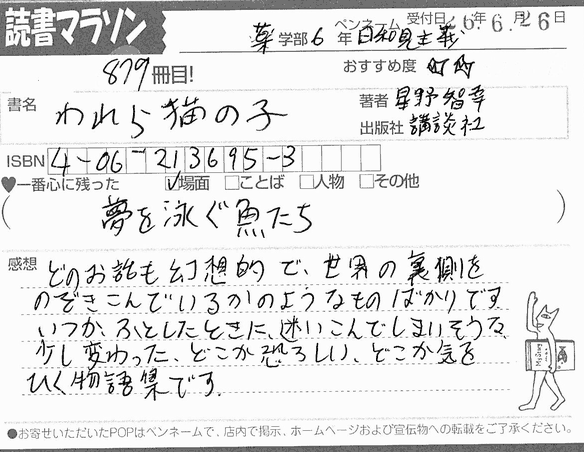 読書マラソン
ペンネーム 受付日 '16年6月26日
薬学部6年 日和見主義
879冊目!
おすすめ度
書名 われら猫の子
著者 星野智幸
出版社 講談社
ISBN 4-06-213695-3
♥一番心に残った ☑場面 □ことば □人物 □その他
(夢を泳ぐ魚たち)
感想 どのお話も幻想的で、世界の裏側を
のぞきこんでいるかのようなものばかりです
いつか、ふとしたときに、迷いこんでしまいそうな、
少し変わった、どこか恐ろしい、どこか気を
ひく物語集です.
●お寄せいただいたPOPはペンネームで、店内で掲示、ホームページおよび宣伝物への転載をご了承ください。